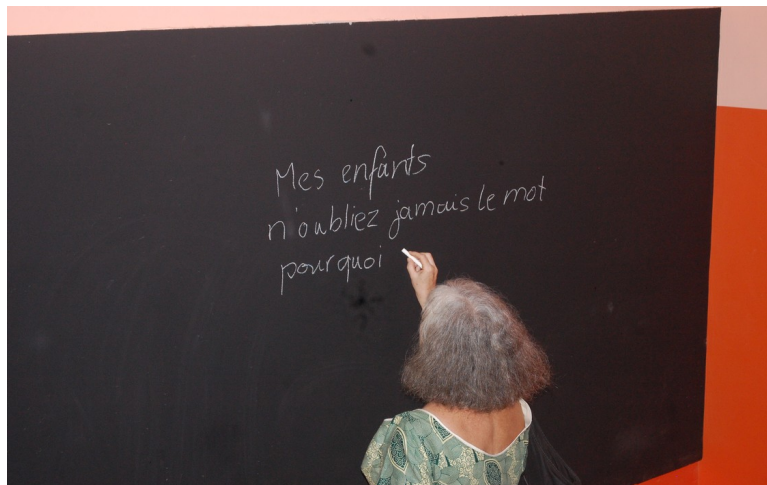 Mes enfants
n'oubliez jamais le mot
pourquoi